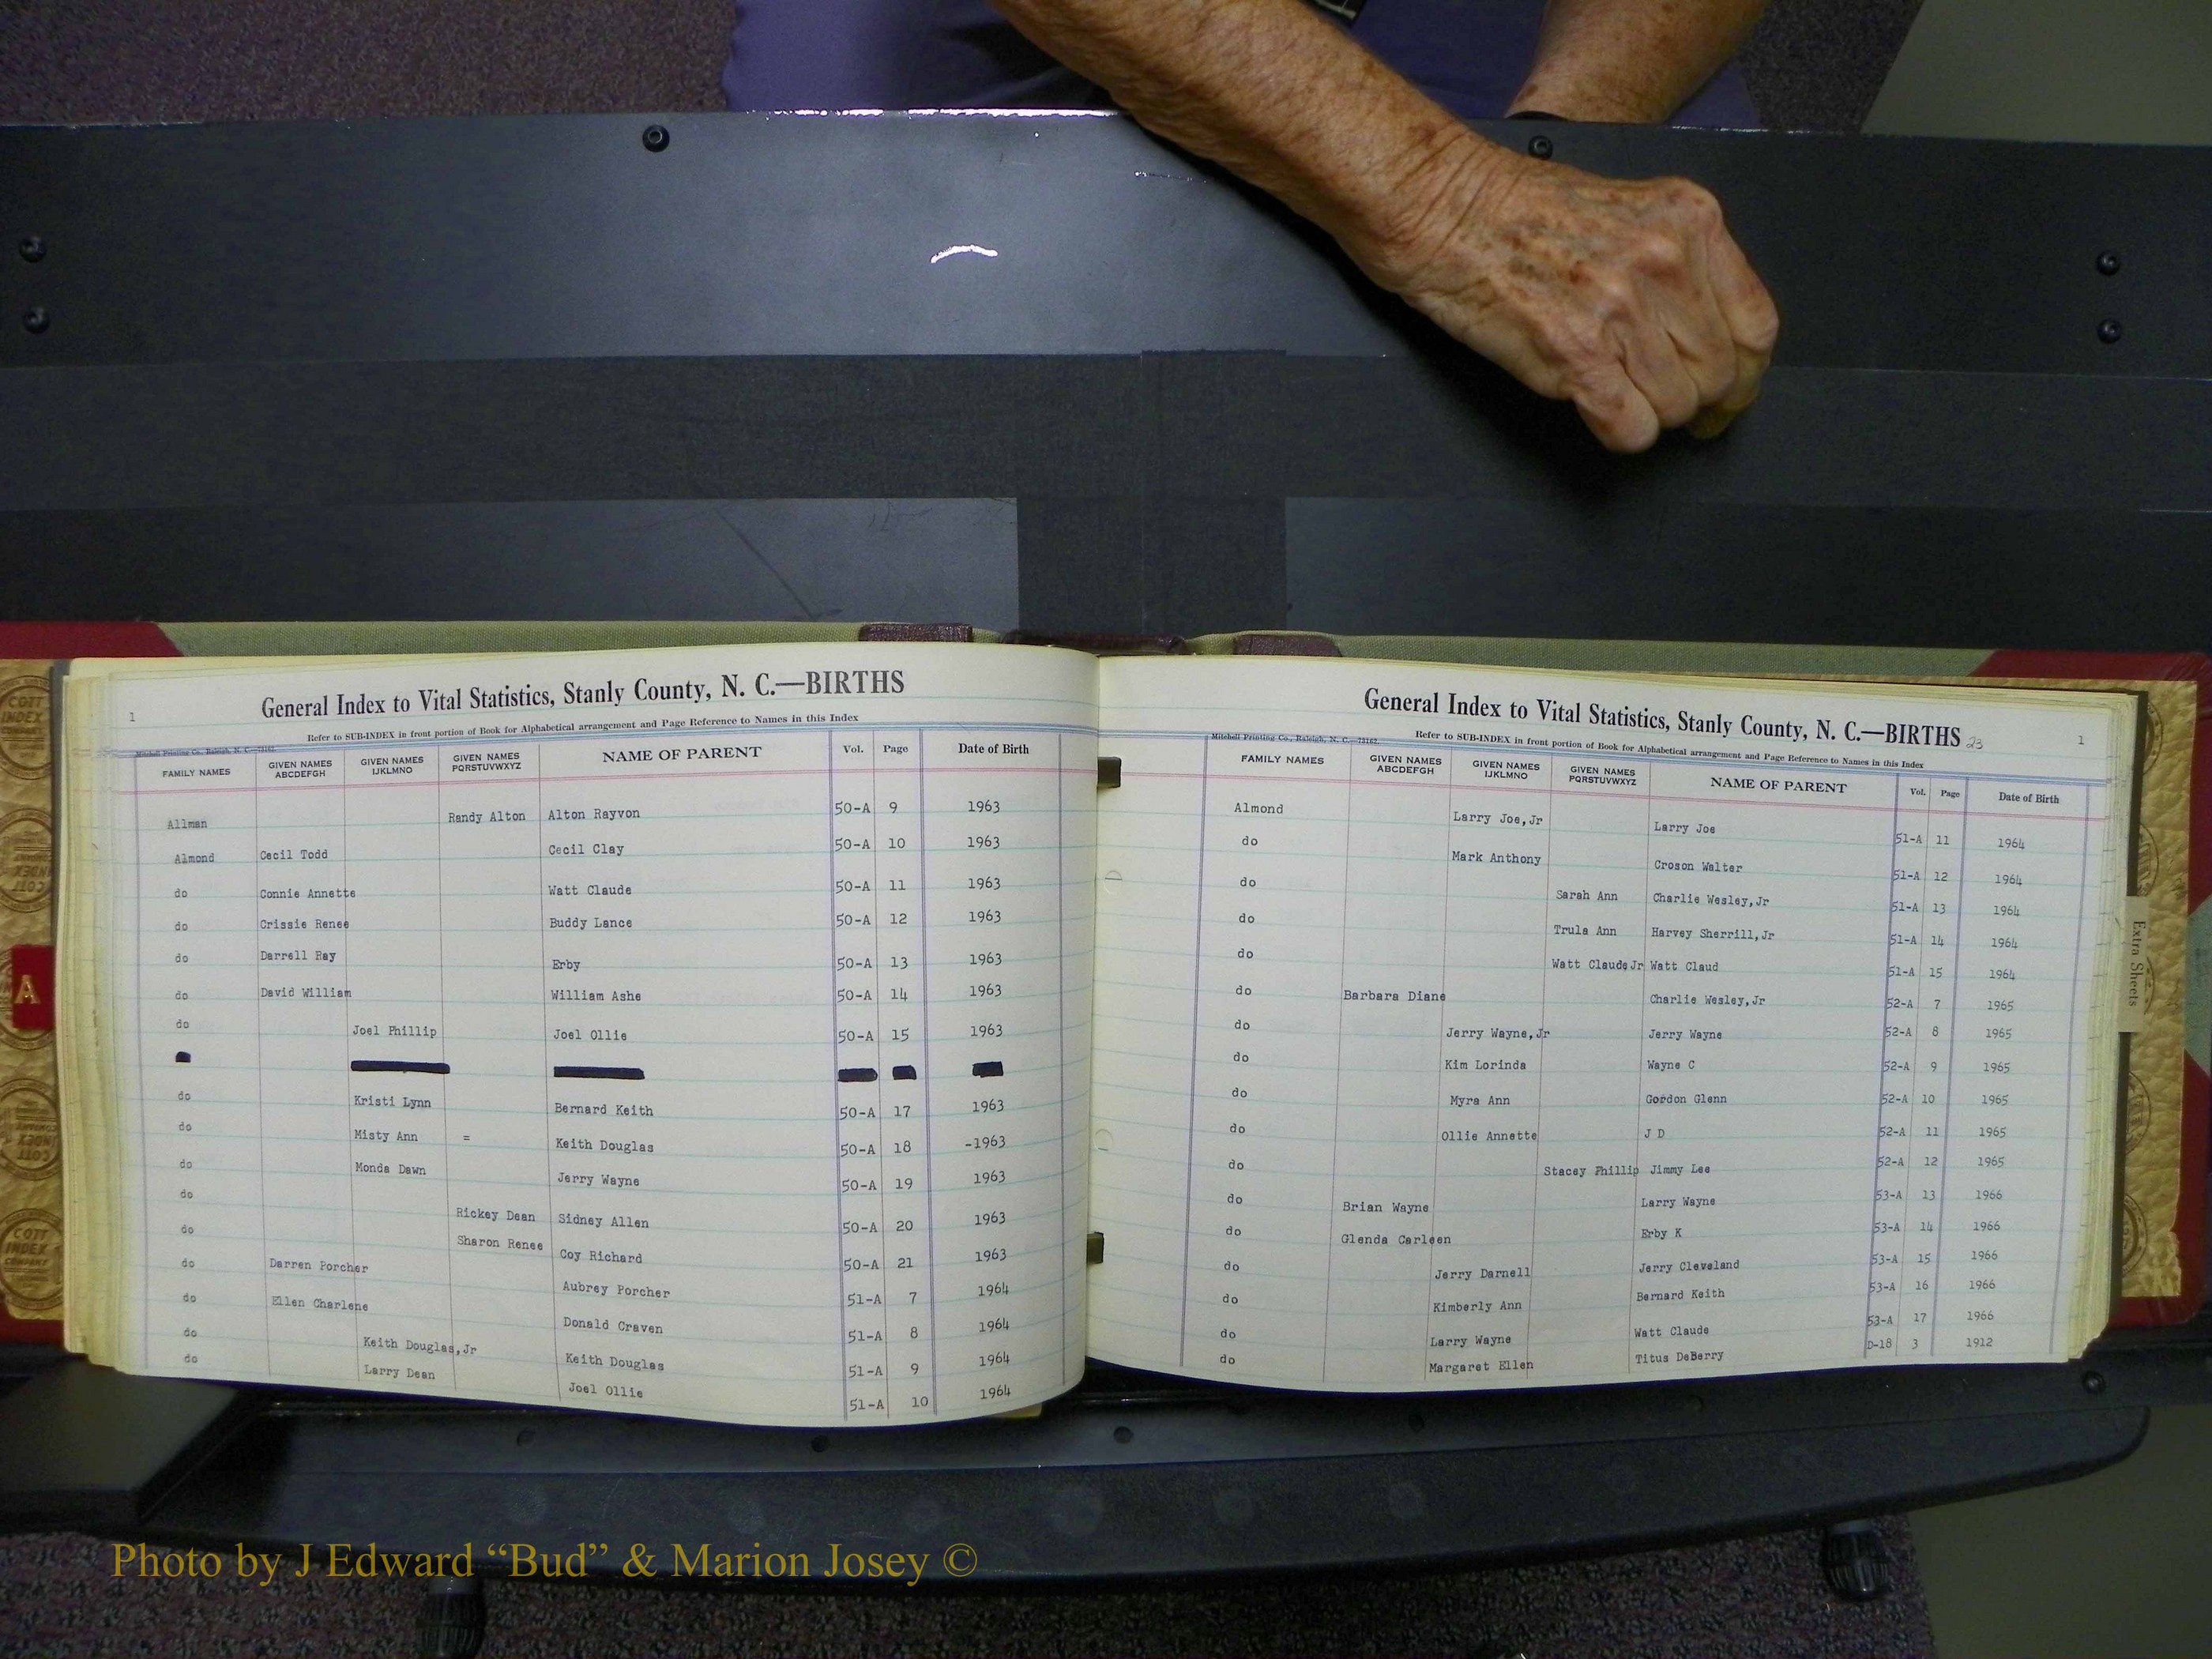 General Index to Vital Statistics, Stanly County, N. C.—BIRTHS
1
Refer to SUB-INDEX in front portion of Book for Alphabetical arrangement and Page Reference to Names in this Index
Mitchell Printing Co., Raleigh, N. C.
FAMILY NAMES GIVEN NAMES ABCDEFGH GIVEN NAMES IJKLMNO GIVEN NAMES PQRSTUVWXYZ NAME OF PARENT Vol. Page Date of Birth
Allman Randy Alton Alton Rayvon 50-A 9 1963
Almond Cecil Todd Cecil Clay 50-A 10 1963
do Connie Annette Watt Claude 50-A 11 1963
do Crissie Renee Buddy Lance 50-A 12 1963
do Darrell Ray Erby 50-A 13 1963
do David William William Ashe 50-A 14 1963
do Joel Phillip Joel Ollie 50-A 15 1963
do Kristi Lynn Bernard Keith 50-A 17 1963
do Misty Ann = Keith Douglas 50-A 18 -1963
do Monda Dawn Jerry Wayne 50-A 19 1963
do Rickey Dean Sidney Allen 50-A 20 1963
do Sharon Renee Coy Richard 50-A 21 1963
do Darren Porcher Aubrey Porcher 51-A 7 1964
do Ellen Charlene Donald Craven 51-A 8 1964
do Keith Douglas,Jr Keith Douglas 51-A 9 1964
do Larry Dean Joel Ollie 51-A 10 1964
General Index to Vital Statistics, Stanly County, N. C.—BIRTHS 23
1
Refer to SUB-INDEX in front portion of Book for Alphabetical arrangement and Page Reference to Names in this Index
Mitchell Printing Co., Raleigh, N. C.—73162.
FAMILY NAMES GIVEN NAMES ABCDEFGH GIVEN NAMES IJKLMNO GIVEN NAMES PQRSTUVWXYZ NAME OF PARENT Vol. Page Date of Birth
Almond Larry Joe,Jr Larry Joe 51-A 11 1964
do Mark Anthony Croson Walter 51-A 12 1964
do Sarah Ann Charlie Wesley,Jr 51-A 13 1964
do Trula Ann Harvey Sherrill,Jr 51-A 14 1964
do Watt Claude Jr Watt Claud 51-A 15 1964
do Barbara Diane Charlie Wesley,Jr 52-A 7 1965
do Jerry Wayne,Jr Jerry Wayne 52-A 8 1965
do Kim Lorinda Wayne C 52-A 9 1965
do Myra Ann Gordon Glenn 52-A 10 1965
do Ollie Annette J D 52-A 11 1965
do Stacey Phillip Jimmy Lee 52-A 12 1965
do Brian Wayne Larry Wayne 53-A 13 1966
do Glenda Carleen Erby K 53-A 14 1966
do Jerry Darnell Jerry Cleveland 53-A 15 1966
do Kimberly Ann Bernard Keith 53-A 16 1966
do Larry Wayne Watt Claude 53-A 17 1966
do Margaret Ellen Titus DeBerry D-18 3 1912
A
Extra Sheets
COTT INDEX COMPANY
Photo by J Edward “Bud” & Marion Josey ©